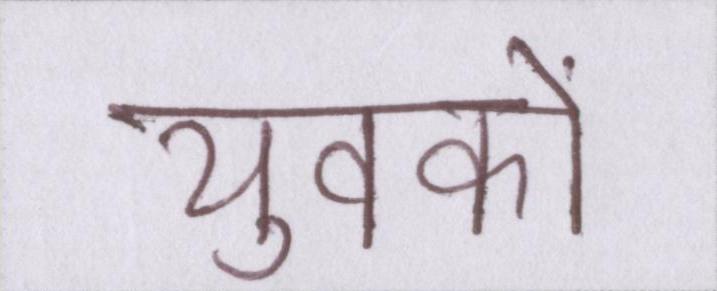 युवकों